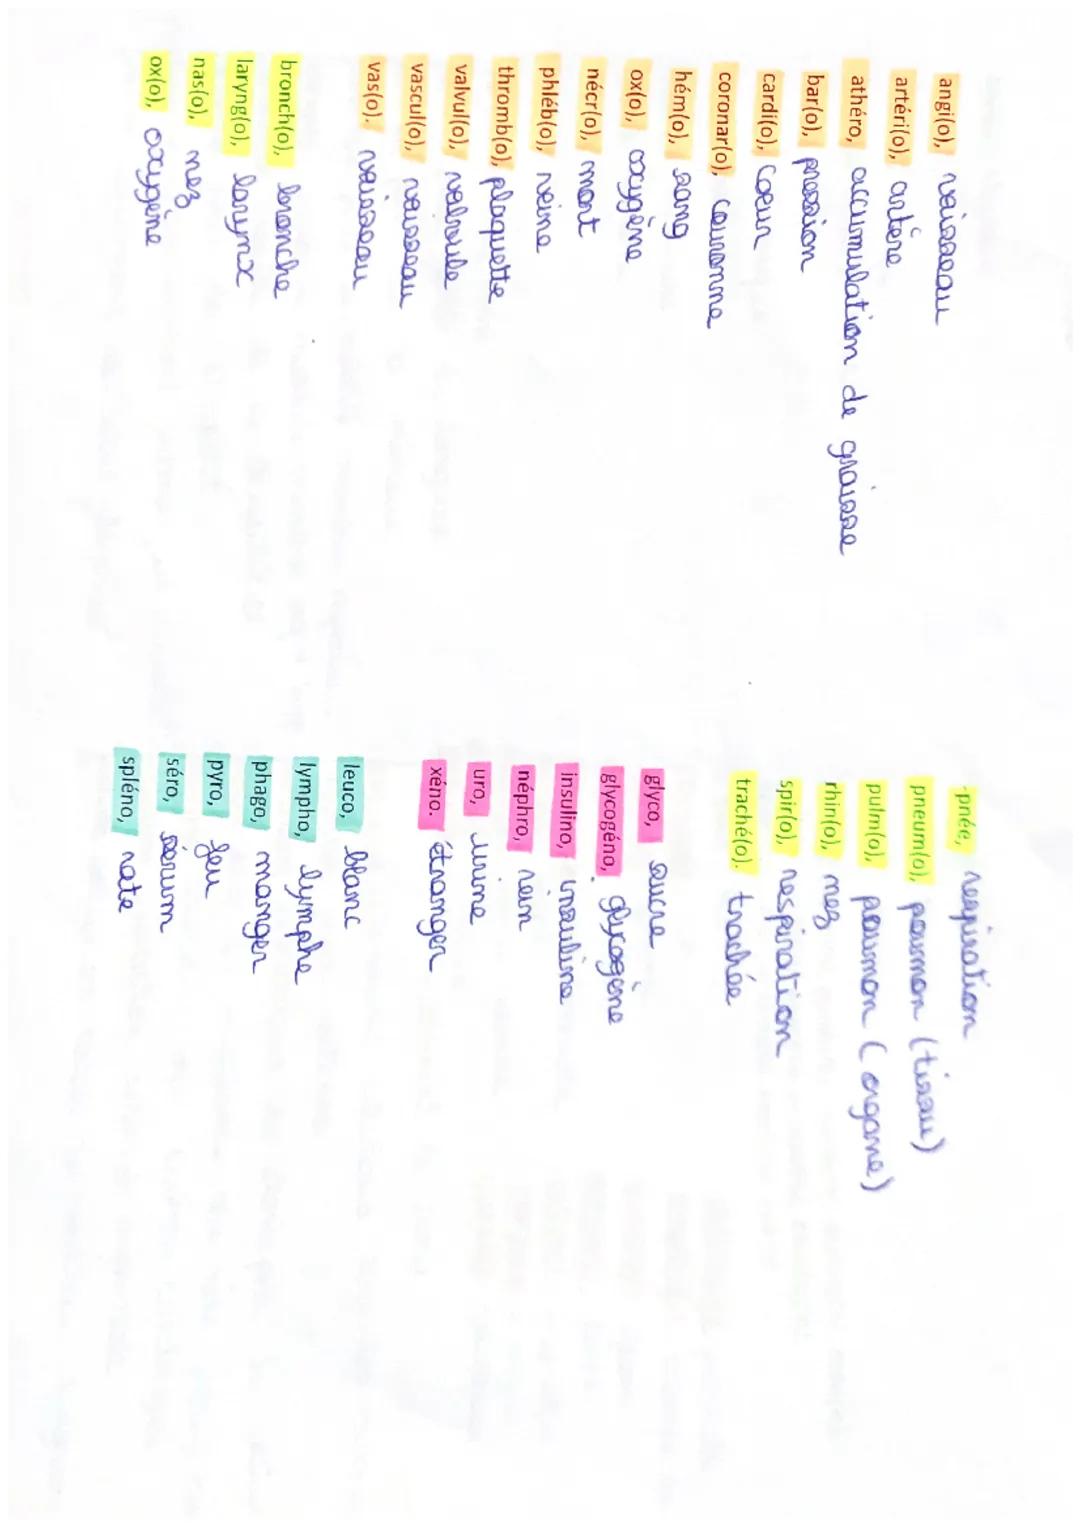 angi(o), vaisseau
artéri(o), artère
athéro, accumulation de graisse
bar(o), pression
cardi(o), coeur
coronar(o), couronne
hém(o), sang
ox(o), oxygène
nécr(o), mort
phléb(o), veine
thromb(o), plaquette
valvul(o), valvule
vascul(o), vaisseau
vas(o). vaisseau
bronch(o), bronche
laryng(o), larynx
nas(o), nez
ox(o), oxygène
-pnée, respiration
pneum(o), poumon (tissau)
pulm(o), poumon (organe)
rhin(o), nez
spir(o), respiration
traché(o). trachée
glyco, sucre
glycogéno, glycogène
insulino, insuline
néphro, rein
uro, urine
xéno. étranger
leuco, blanc
lympho, lymphe
phago, manger
pyro, feu
séro, sérum
spléno, rate